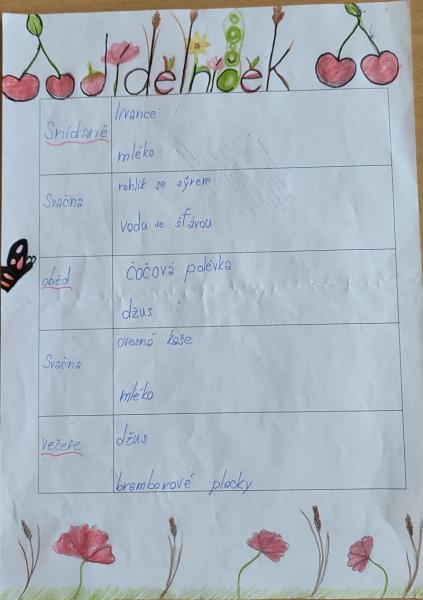 Jídelníček
Snídaně
lívance
mléko
Svačina
rohlík se sýrem
vodu se šťávou
oběd
čočová polévka
džus
Svačina
ovesná kaše
mléko
večeře
džus
bramborové placky